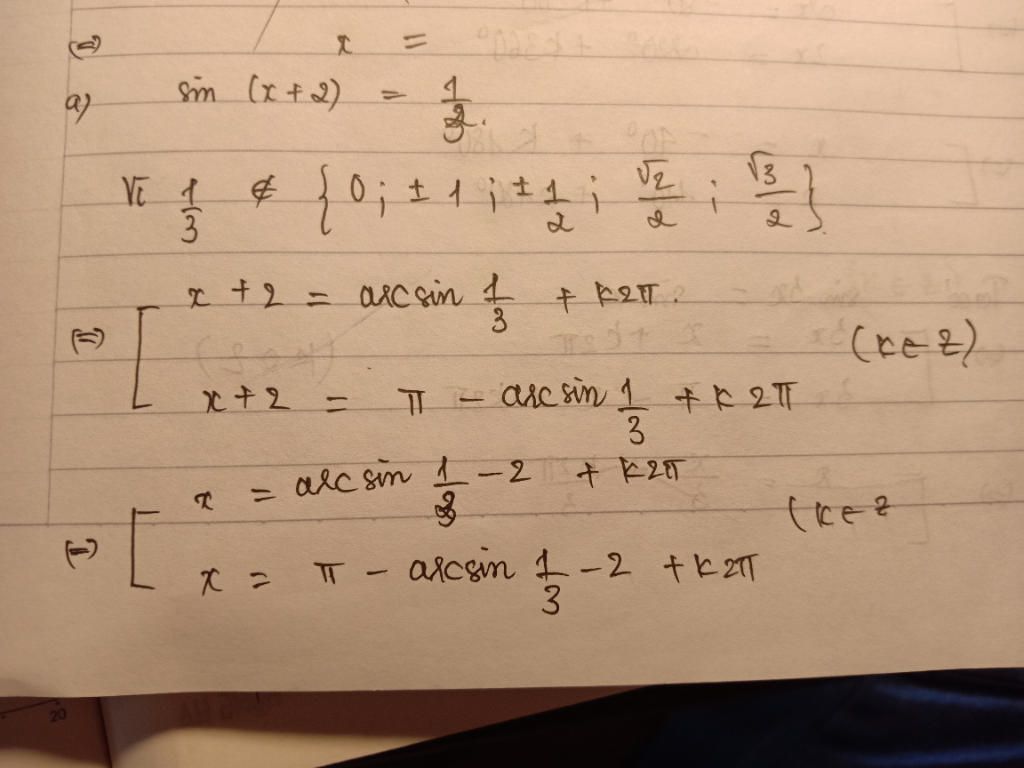 (=) x =
a) sin (x + 2) = 1/3.
Vì 1/3 ∉ { 0 ; ± 1 ; ± 1/2 ; √2/2 ; √3/2 }
x + 2 = arcsin 1/3 + k2π.
(=) [ (k ∈ Z)
x + 2 = π − arcsin 1/3 + k2π
x = arcsin 1/3 − 2 + k2π
(=) [ (k ∈ Z
x = π − arcsin 1/3 − 2 + k2π
20